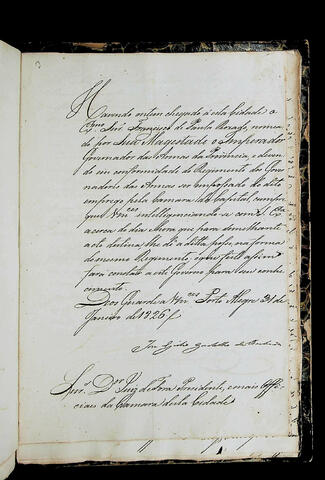 Havendo ontem chegado á esta Cidade o
Exmo Snr Francisco de Paula Rozado, nomea
do por Sua Magestade o Imperador
Governador das Armas da Provincia, e deven
do em conformidade do Regimento dos Go
nadores das Armas ser empossado do dito
emprego pela Camara da Capital, cumpre
que Vmces intelligenciando a com S. Exa
acerca do dia e hora que para
acto destina, lhe dê a ditta posse, na forma
do mesmo Regimento, e que feito assim
fará constar a este Governo para seu conhe
cimento.
Deos Guarde a Vmces Porto Alegre 31 de
Janeiro de 1826
Joze Egidio Gordilho de Barbuda
Snres Dor Juiz de Fora Prezidente, e mais Offi
ciaes da Camara desta Cidade